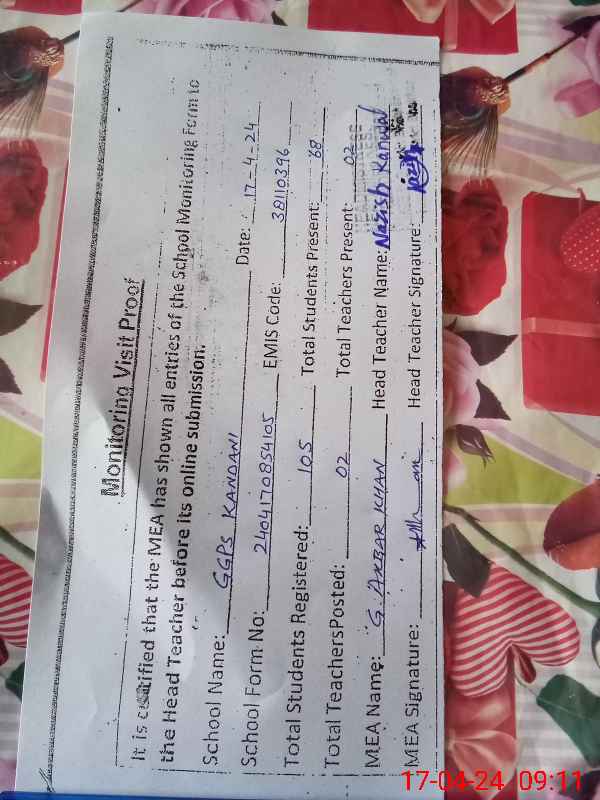 Monitoring Visit Proof
It is certified that the MEA has shown all entries of the School Monitoring Form to
the Head Teacher before its online submission.
School Name: GGPS KANDANI Date: 17-4-24
School Form No: 2404170854105 EMIS Code: 38110396
Total Students Registered: 105 Total Students Present: 68
Total Teachers Posted: 02 Total Teachers Present: 02
MEA Name: G. AKBAR KHAN Head Teacher Name: Nazish Kanwal
MEA Signature: Head Teacher Signature:
17-04-24 09:11